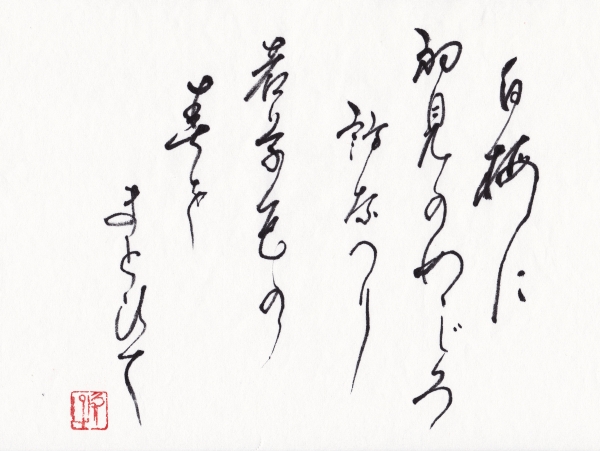 白梅に
初見のめじろ
訪なへり
若草色の
春を
まとひて